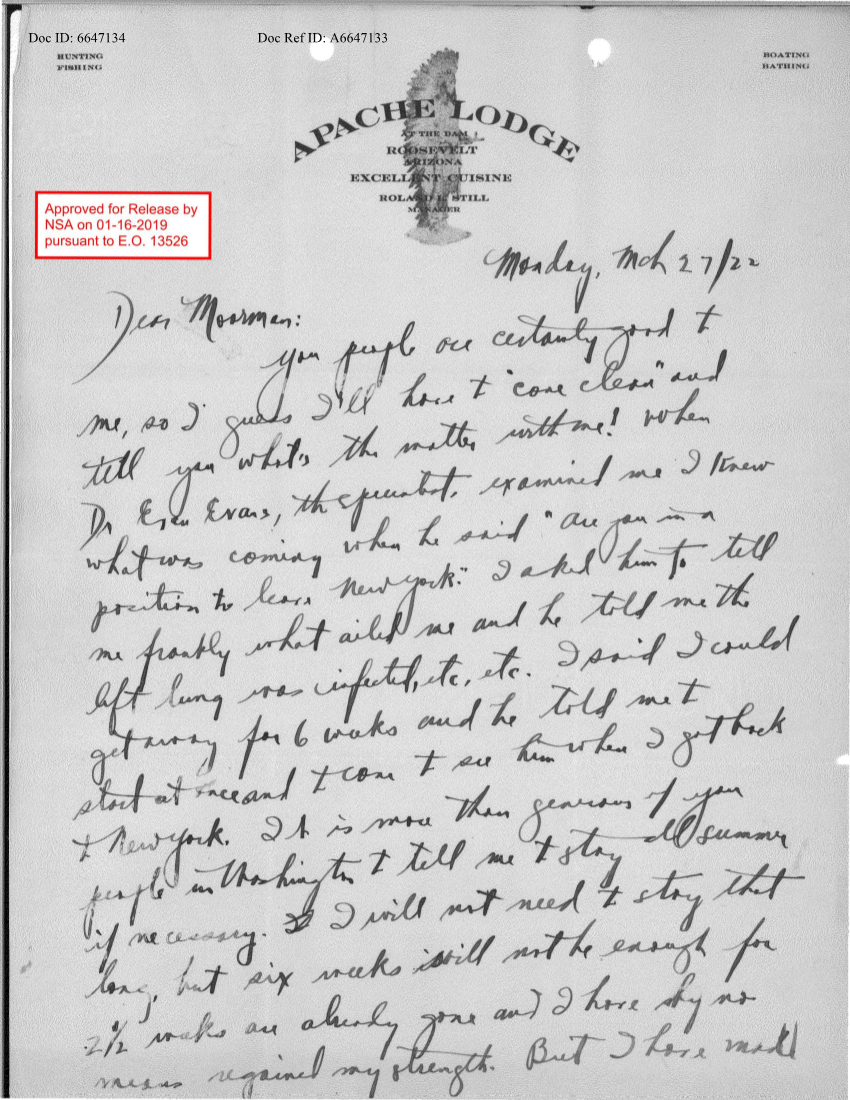 Doc ID: 6647134 Doc Ref ID: A6647133
HUNTING
FISHING
BOATING
BATHING
APACHE LODGE
AT THE DAM
ROOSEVELT
ARIZONA
EXCELLENT CUISINE
ROLAND L. STILL
MANAGER
Approved for Release by
NSA on 01-16-2019
pursuant to E.O. 13526
Monday, Mch 27/22
Dear Moorman:
You people are certainly good to
me, so I guess I'll have to "come clean" and
tell you what's the matter with me! When
Dr Evan Evans, the specialist, examined me I knew
what was coming when he said "are you in a
position to leave New York." I asked him to tell
me frankly what ailed me and he told me the
left lung was infected, etc, etc. I said I could
get away for 6 weeks and he told me to
start at once and to come to see him when I got back
to New York. It is more than generous of you
people in Washington to tell me to stay all summer
if necessary. I will not need to stay that
long, but six weeks will not be enough for
2½ weeks are already gone and I have by no
means regained my strength. But I have made